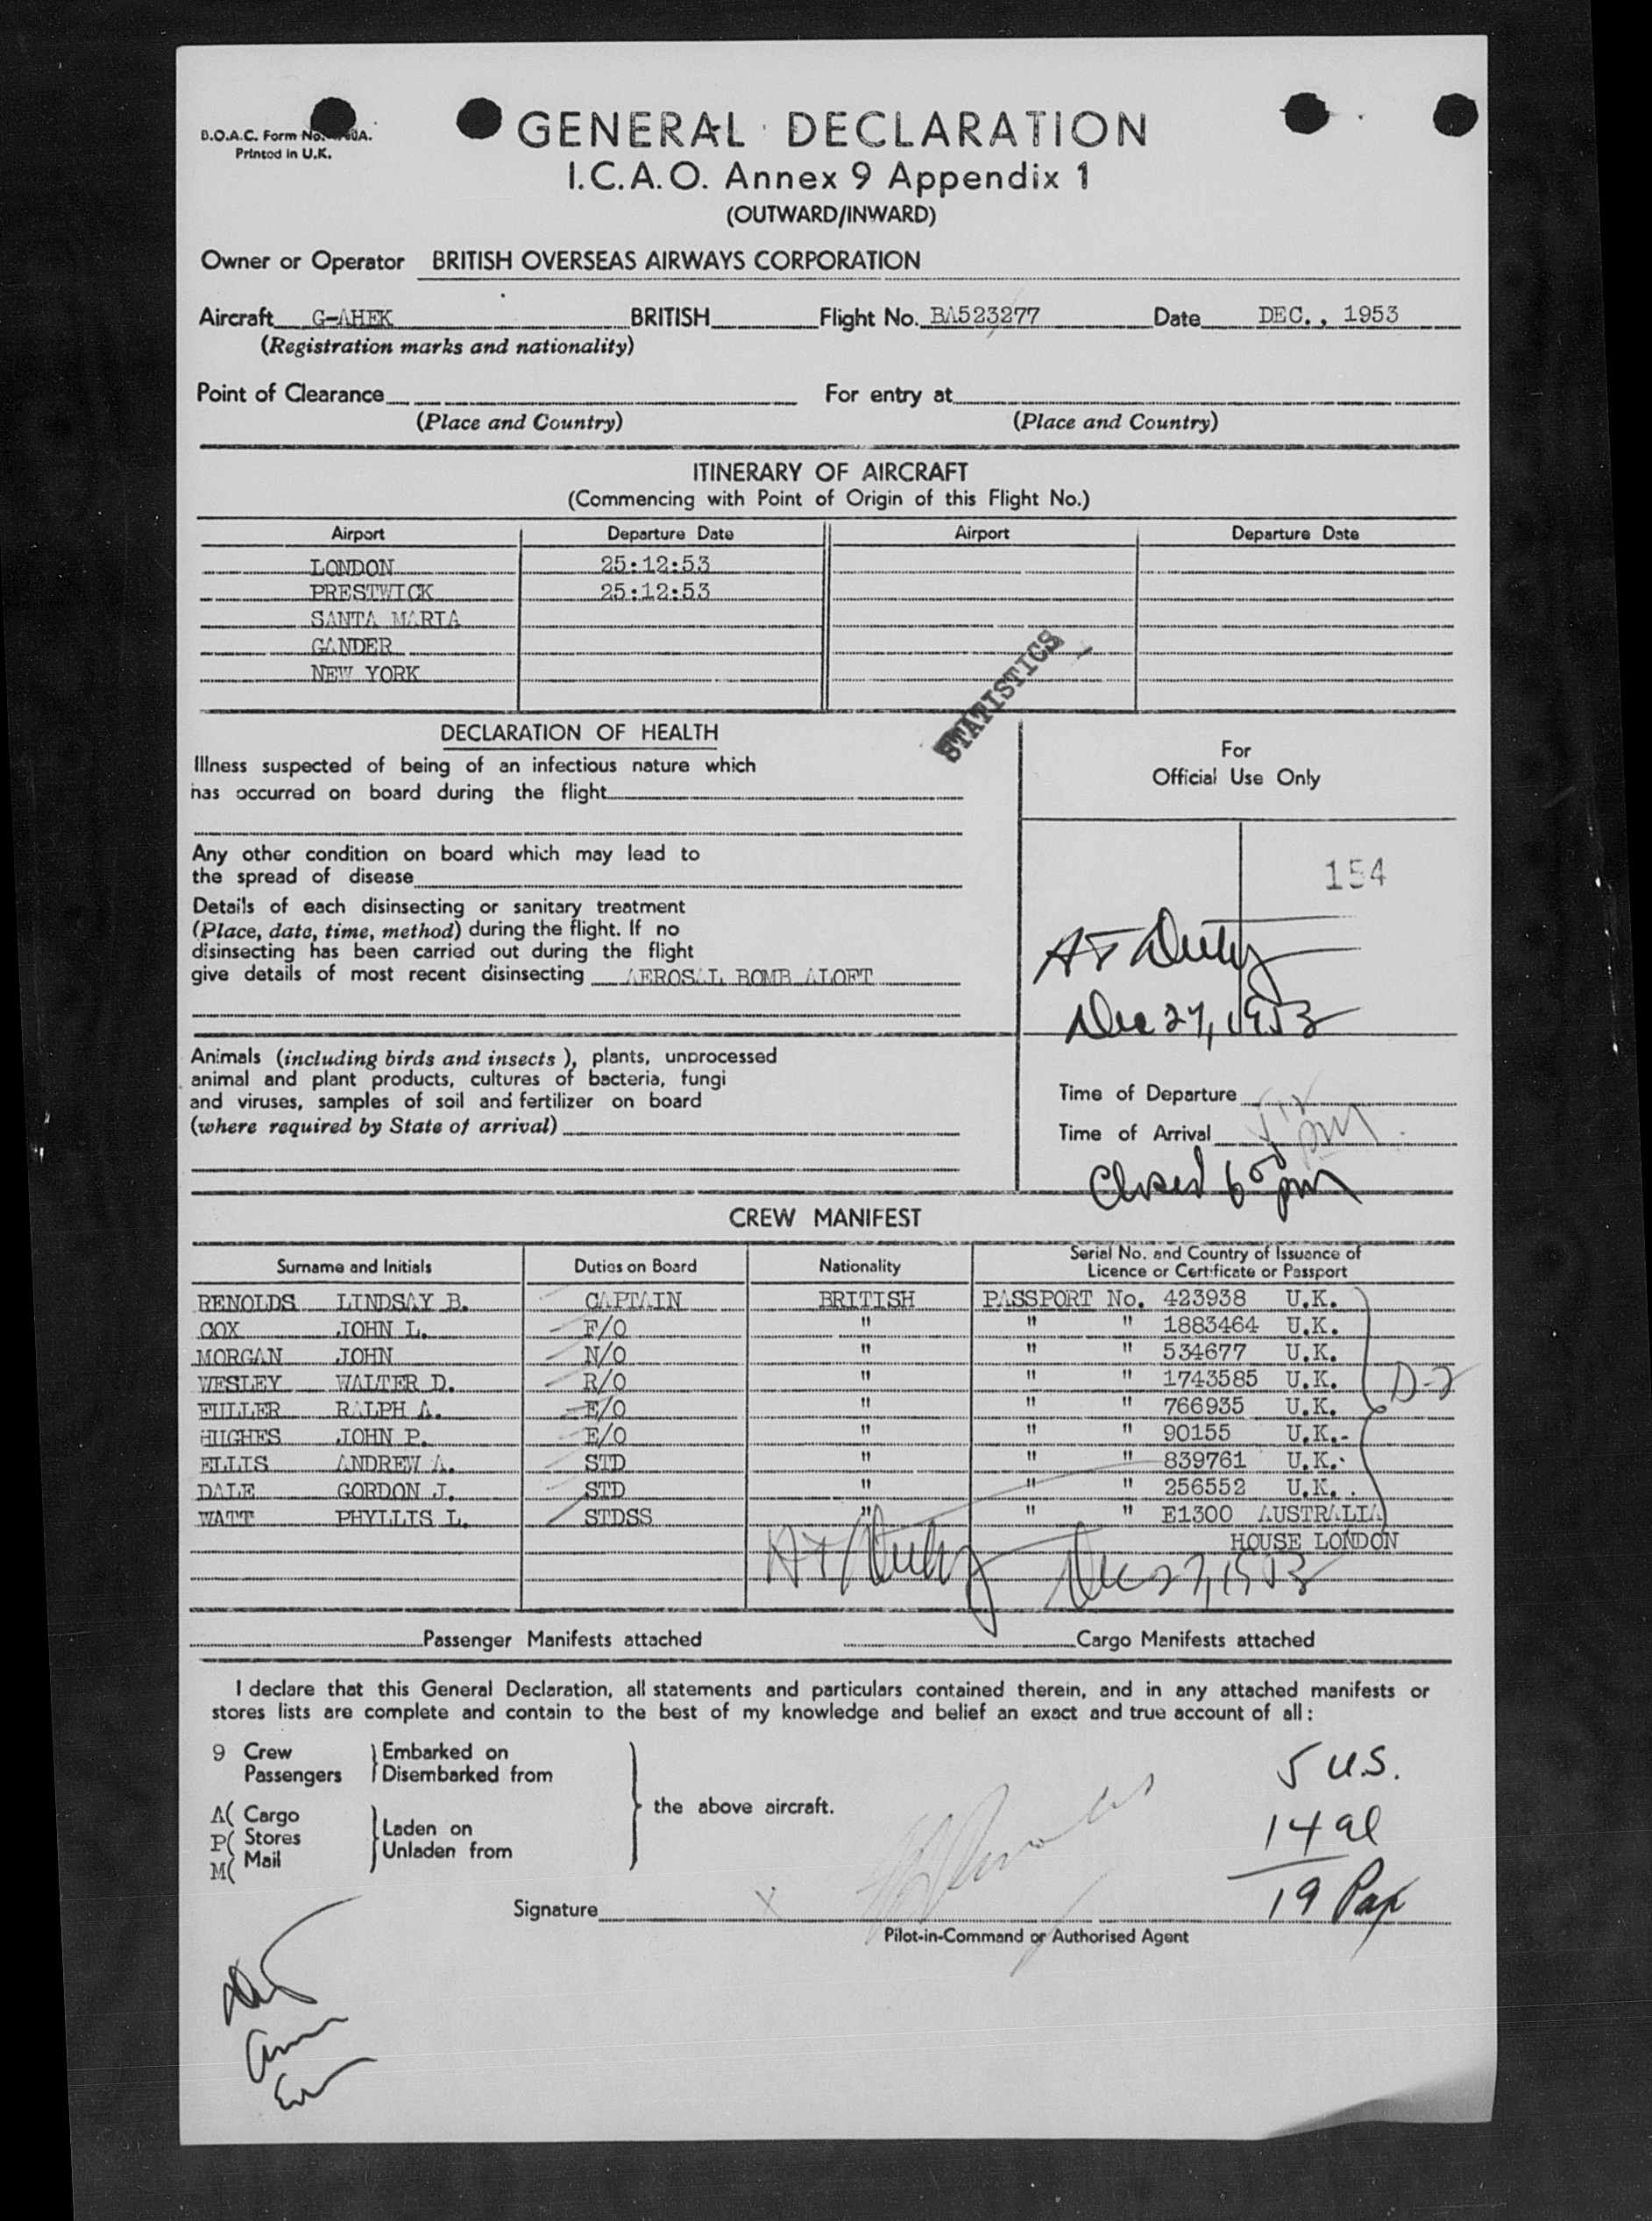 B.O.A.C. Form No. 0A.
Printed in U.K.
GENERAL DECLARATION
I.C.A.O. Annex 9 Appendix 1
(OUTWARD/INWARD)
Owner or Operator BRITISH OVERSEAS AIRWAYS CORPORATION
Aircraft G-AHEK BRITISH Flight No. BA523277 Date DEC., 1953
(Registration marks and nationality)
Point of Clearance For entry at
(Place and Country) (Place and Country)
ITINERARY OF AIRCRAFT
(Commencing with Point of Origin of this Flight No.)
Airport Departure Date Airport Departure Date
LONDON 25:12:53
PRESTWICK 25:12:53
SANTA MARIA
GANDER
NEW YORK
STATISTICS
DECLARATION OF HEALTH
Illness suspected of being of an infectious nature which
has occurred on board during the flight
For
Official Use Only
Any other condition on board which may lead to
the spread of disease
154
Details of each disinsecting or sanitary treatment
(Place, date, time, method) during the flight. If no
disinsecting has been carried out during the flight
give details of most recent disinsecting AEROSAL BOMB ALOFT
Dec 27, 1953
Animals (including birds and insects), plants, unprocessed
animal and plant products, cultures of bacteria, fungi
and viruses, samples of soil and fertilizer on board
(where required by State of arrival)
Time of Departure
Time of Arrival pm
Closed 6 50 pm
CREW MANIFEST
Surname and Initials Duties on Board Nationality Serial No. and Country of Issuance of
Licence or Certificate or Passport
RENOLDS LINDSAY B. CAPTAIN BRITISH PASSPORT No. 423938 U.K.
COX JOHN L. F/O " " " 1883464 U.K.
MORGAN JOHN N/O " " " 534677 U.K.
WESLEY WALTER D. R/O " " " 1743585 U.K. D-2
FULLER RALPH A. E/O " " " 766935 U.K.
HUGHES JOHN P. E/O " " " 90155 U.K.
ELLIS ANDREW A. STD " " " 839761 U.K.
DALE GORDON J. STD " " " 256552 U.K.
WATT PHYLLIS L. STDSS " " " E1300 AUSTRALIA
HOUSE LONDON
Dec 27, 1953
Passenger Manifests attached Cargo Manifests attached
I declare that this General Declaration, all statements and particulars contained therein, and in any attached manifests or
stores lists are complete and contain to the best of my knowledge and belief an exact and true account of all:
9 Crew Embarked on
Passengers Disembarked from
the above aircraft.
A( Cargo
P( Stores
M( Mail
Laden on
Unladen from
5 U.S.
14 al
19 Pax
Signature X
Pilot-in-Command or Authorised Agent